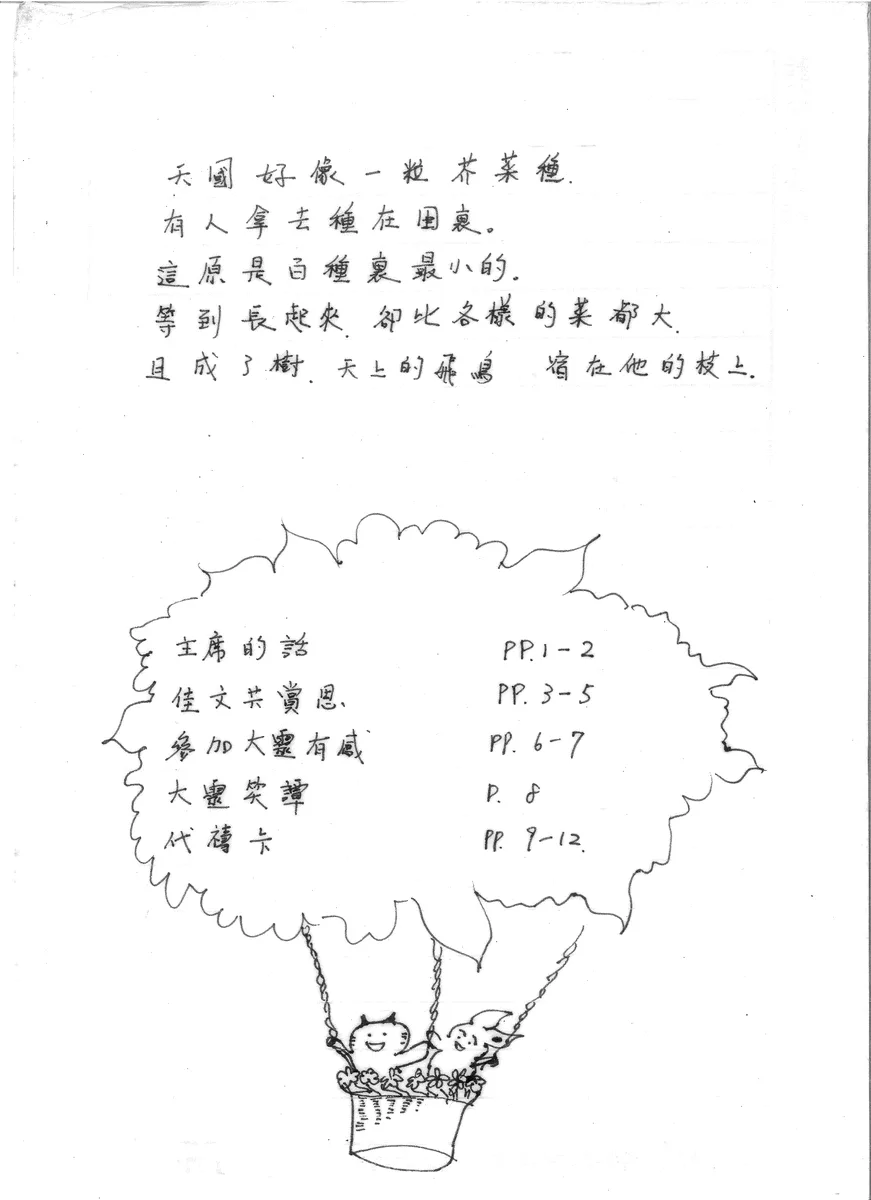 天國好像一粒芥菜種.
有人拿去種在田裏。
這原是百種裏最小的.
等到長起來.卻比各樣的菜都大.
且成了樹.天上的飛鳥 宿在他的枝上.
主席的話 PP.1-2
佳文共賞恩. PP.3-5
參加大靈有感 PP.6-7
大靈笑譚 P.8
代禱卡 PP.9-12.